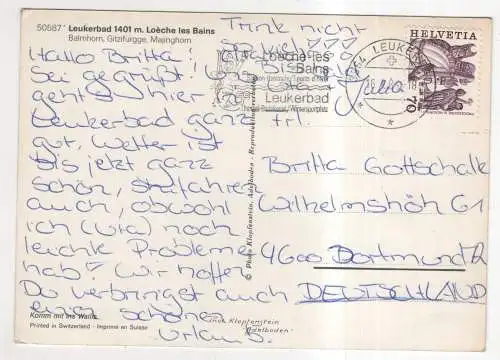 50587 Leukerbad 1401 m. Loèche les Bains
Balmhorn, Gitzifurgge, Majinghorn
Trink nicht
so viel
Hallo Britta!
Sei gegrüßt! Uns
geht's hier
Leukerbad ganz
gut, Wetter ist
bis jetzt ganz
schön, skifahren
auch, obwohl
ich (Uta) noch
leichte Probleme
hab! Wir hoffen
Du verbringst auch
einen schönen
Urlaub.
Loèche les
Bains
Leukerbad
LEUKERBAD
HELVETIA
70
Britta Gottschalk
Wilhelmshöh 61
4600 Dortmund
DEUTSCHLAND
© Photo Klopfenstein, Adelboden - Reproduktion
Komm mit ins Wallis
Printed in Switzerland - Imprimé en Suisse
Klopfenstein
Adelboden